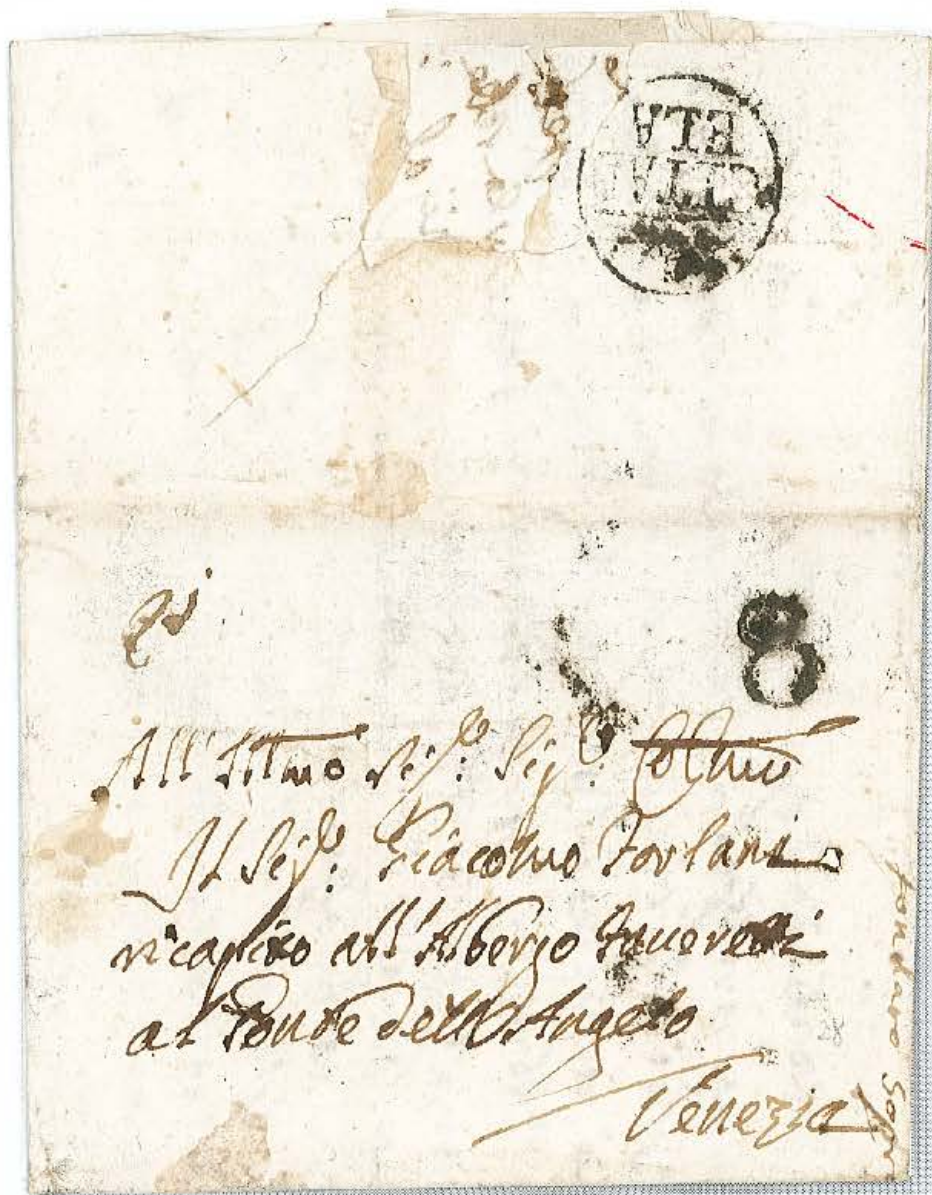 CITAD
ELA
8
All' Illmo Sigr: Sigr: Colmo
Il Sigr: Giacomo Forlani
ricapito all' Albergo
al Ponte dell' Angelo
Venezia
28